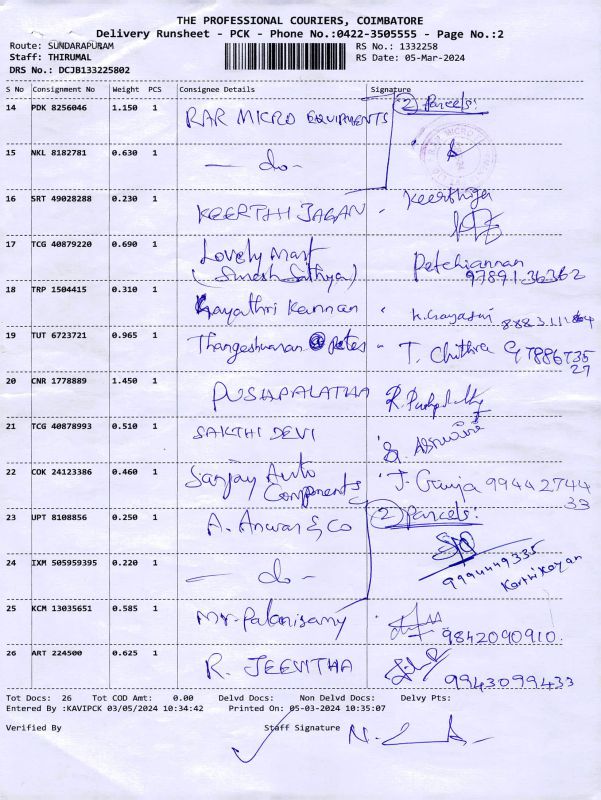 THE PROFESSIONAL COURIERS, COIMBATORE
Delivery Runsheet - PCK - Phone No.:0422-3505555 - Page No.:2
Route: SUNDARAPURAM RS No.: 1332258
Staff: THIRUMAL RS Date: 05-Mar-2024
DRS No.: DCJB133225802
S No Consignment No Weight PCS Consignee Details Signature
14 PDK 8256046 1.150 1 RAR MICRO EQUIPMENTS 2 Parcels:
15 NKL 8182781 0.630 1 — do —
16 SRT 49028288 0.230 1 KEERTHI JAGAN - Keerthiga
17 TCG 40879220 0.690 1 Lovely Mart Petchiannan
(Suresh Sathya) 97891 36362
18 TRP 1504415 0.310 1 Gayathri Kannan
19 TUT 6723721 0.965 1 Thangeshwaran - T. Chithra 97886735
27
20 CNR 1778889 1.450 1 PUSHPALATHA
21 TCG 40878993 0.510 1 SAKTHI DEVI
22 COK 24123386 0.460 1 Sanjay Auto J. 99442744
Components 33
23 UPT 8108856 0.250 1 A. Anwar & Co 2 Parcels:
24 IXM 505959395 0.220 1 — do — 9994449335
Karthikeyan
25 KCM 13035651 0.585 1 Mr. Palanisamy 9842090910.
26 ART 224500 0.625 1 R. JEEVITHA 9943099433
Tot Docs: 26 Tot COD Amt: 0.00 Delvd Docs: Non Delvd Docs: Delvy Pts:
Entered By :KAVIPCK 03/05/2024 10:34:42 Printed On: 05-03-2024 10:35:07
Verified By Staff Signature